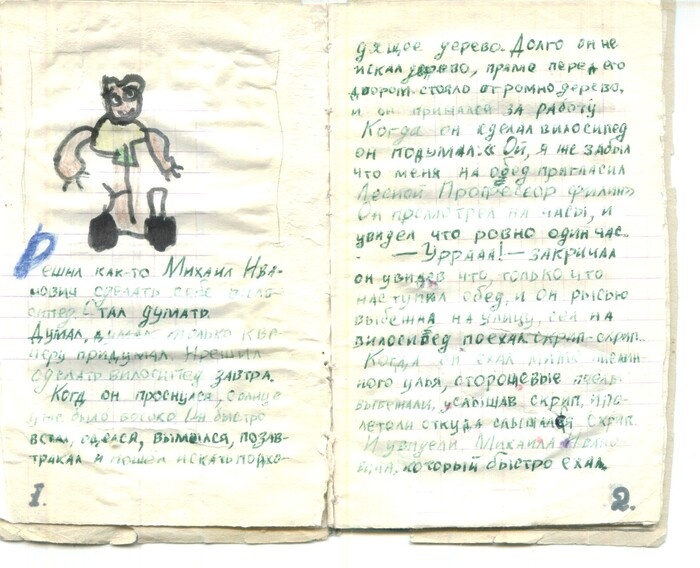 Решил как-то Михаил Ива-
нович сделать себе вило-
сипед. Стал думать.
Думал, думал только к ве-
черу придумал. И решил
сделать вилосипед завтра.
Когд он проснулся, солнце
уже было високо. Он быстро
встал, оделся, вымылся, позав-
тракал и пошёл искать подхо-
1.
дящее дерево. Долго он не
искал дерево, прямо перед его
двором стояло огромно дерево,
и он принялся за работу.
Когда он сделал вилосипед
он подумал: « Ой, я же забыл
что меня на обед пригласил
Лесной Профессор Филин»
Он просмотрел на часы, и
увидел что ровно один час.
— Уррааа! — закричал
он увидев что, только что
наступил обед, и он рысью
выбежал на улицу, сел на
вилосипед поехал. Скрип-скрип..
Когда он ехал мимо пчелин-
ного улья, сторощевые пчелы
выбежали, услышав скрип, и по-
летели откуда слышался скрип.
И увидели Михаила Ивано-
вича, который быстро ехал.
2.